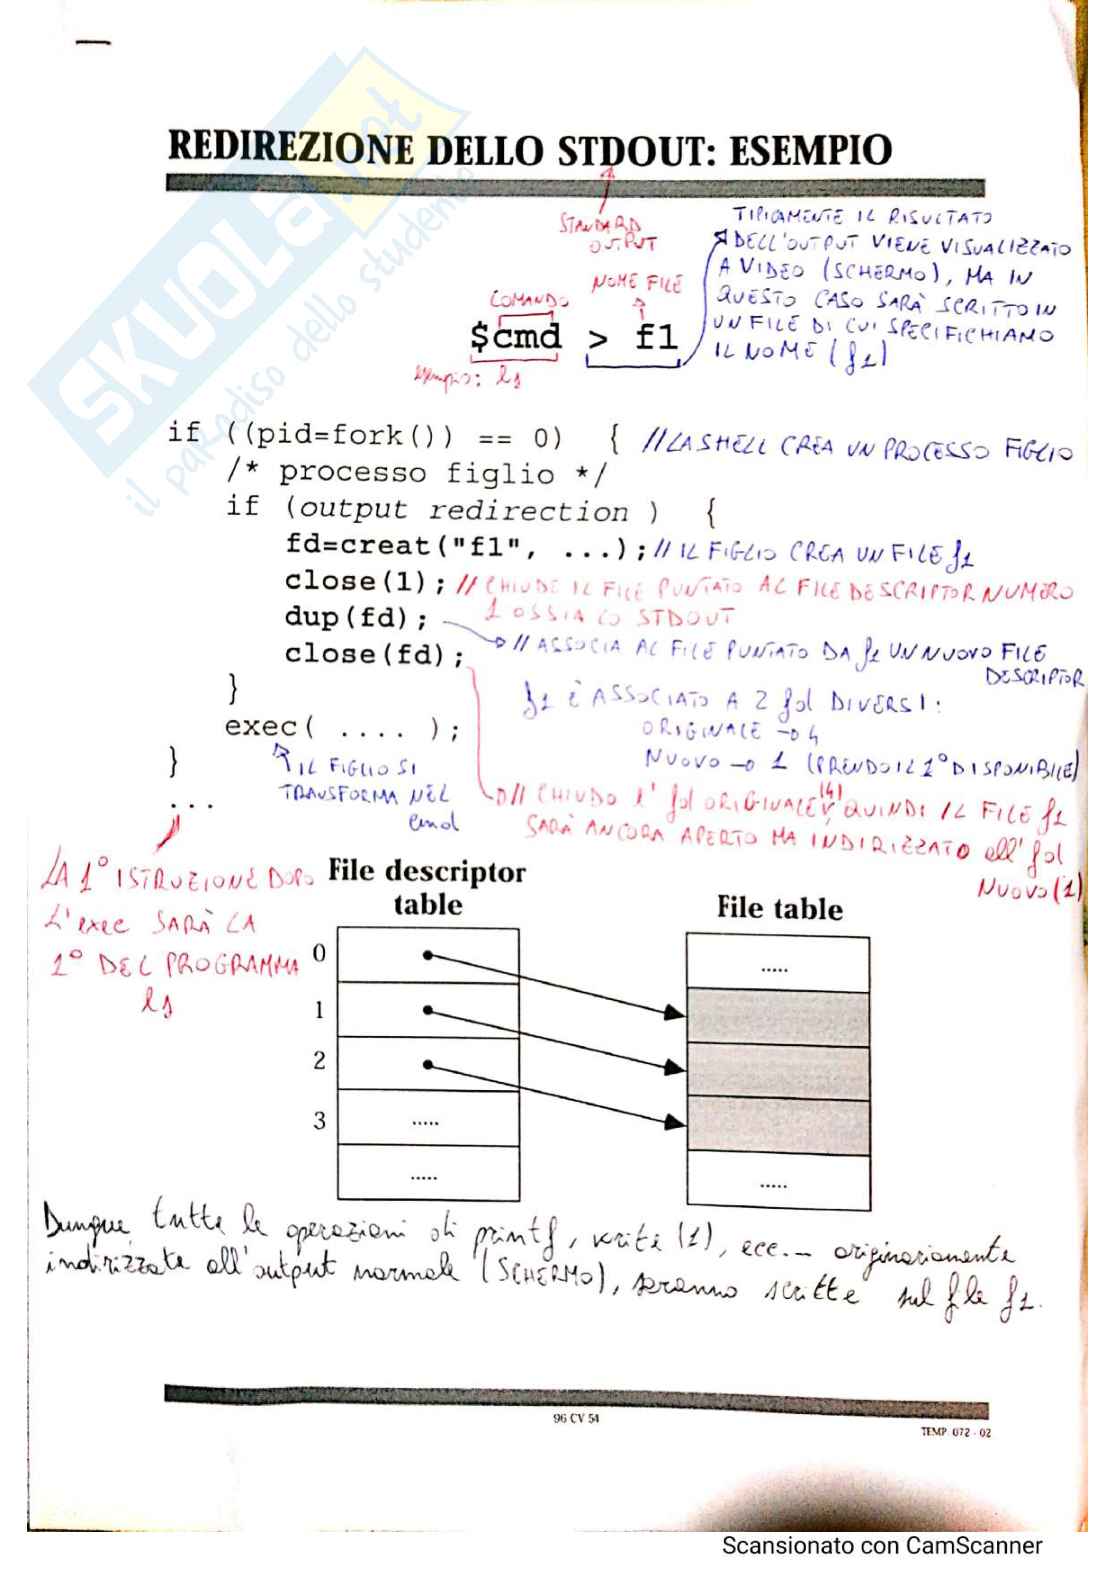 SKUOLA.net
il paradiso dello studente
REDIREZIONE DELLO STDOUT: ESEMPIO
STANDARD
OUTPUT
TIPICAMENTE IL RISULTATO
DELL'OUTPUT VIENE VISUALIZZATO
A VIDEO (SCHERMO), MA IN
QUESTO CASO SARÀ SCRITTO IN
UN FILE DI CUI SPECIFICHIAMO
IL NOME (f1)
COMANDO
NOME FILE
$cmd > f1
esempio: ls
if ((pid=fork()) == 0) { // LA SHELL CREA UN PROCESSO FIGLIO
/* processo figlio */
if (output redirection ) {
fd=creat("f1", ...); // IL FIGLIO CREA UN FILE f1
close(1); // CHIUDE IL FILE PUNTATO AL FILE DESCRIPTOR NUMERO
1 OSSIA LO STDOUT
dup(fd);
// ASSOCIA AL FILE PUNTATO DA f1 UN NUOVO FILE
DESCRIPTOR
close(fd);
}
f1 È ASSOCIATO A 2 fd DIVERSI:
ORIGINALE → 4
NUOVO → 1 (PRENDO IL 1° DISPONIBILE)
exec( .... );
}
IL FIGLIO SI
TRASFORMA NEL
cmd
// CHIUDO l' fd ORIGINALE (4), QUINDI IL FILE f1
SARÀ ANCORA APERTO MA INDIRIZZATO all' fd
NUOVO (1)
...
LA 1° ISTRUZIONE DOPO
L'exec SARÀ LA
1° DEL PROGRAMMA
ls
File descriptor
table
File table
0
1
2
3
.....
.....
.....
.....
Dunque, tutte le operazioni di printf, write (1), ecc... originariamente
indirizzate all'output normale (SCHERMO), saranno scritte sul file f1.
96 CV 54
TEMP. 072 - 02
Scansionato con CamScanner